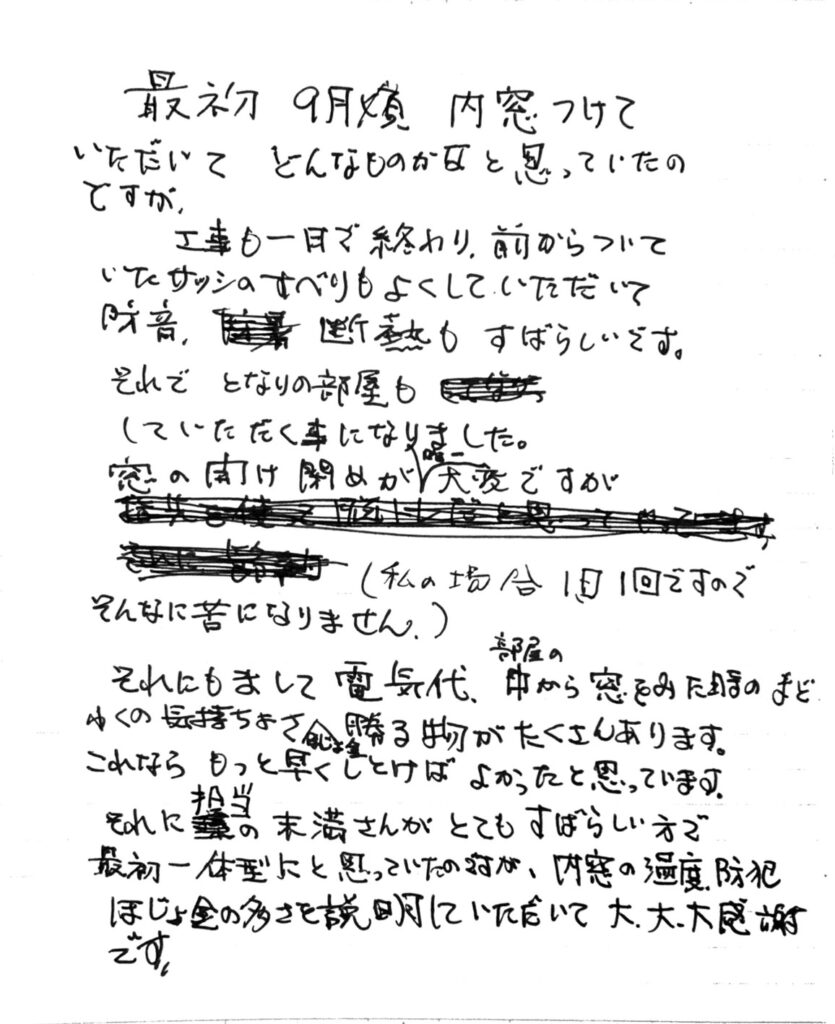 最初 9月頃 内窓つけて
いただいて どんなものかなと思っていたの
ですが、
工事も一日で終わり、前からついて
いたサッシのすべりもよくしていただいて
防音、断熱もすばらしいです。
それで となりの部屋も
していただく事になりました。
窓の開け閉めが唯一大変ですが
(私の場合 1日1回ですので
そんなに苦になりません。)
それにもまして 電気代、部屋の中から窓をみた時の
の気持ちよさ ほじょ金 勝る物がたくさんあります。
これなら もっと早くしとけば よかったと思っています。
それに担当の末満さんが とてもすばらしい方で
最初一体型にと思っていたのですが、内窓の温度、防犯
ほじょ金の多さを説明していただいて 大、大、大感謝
です。